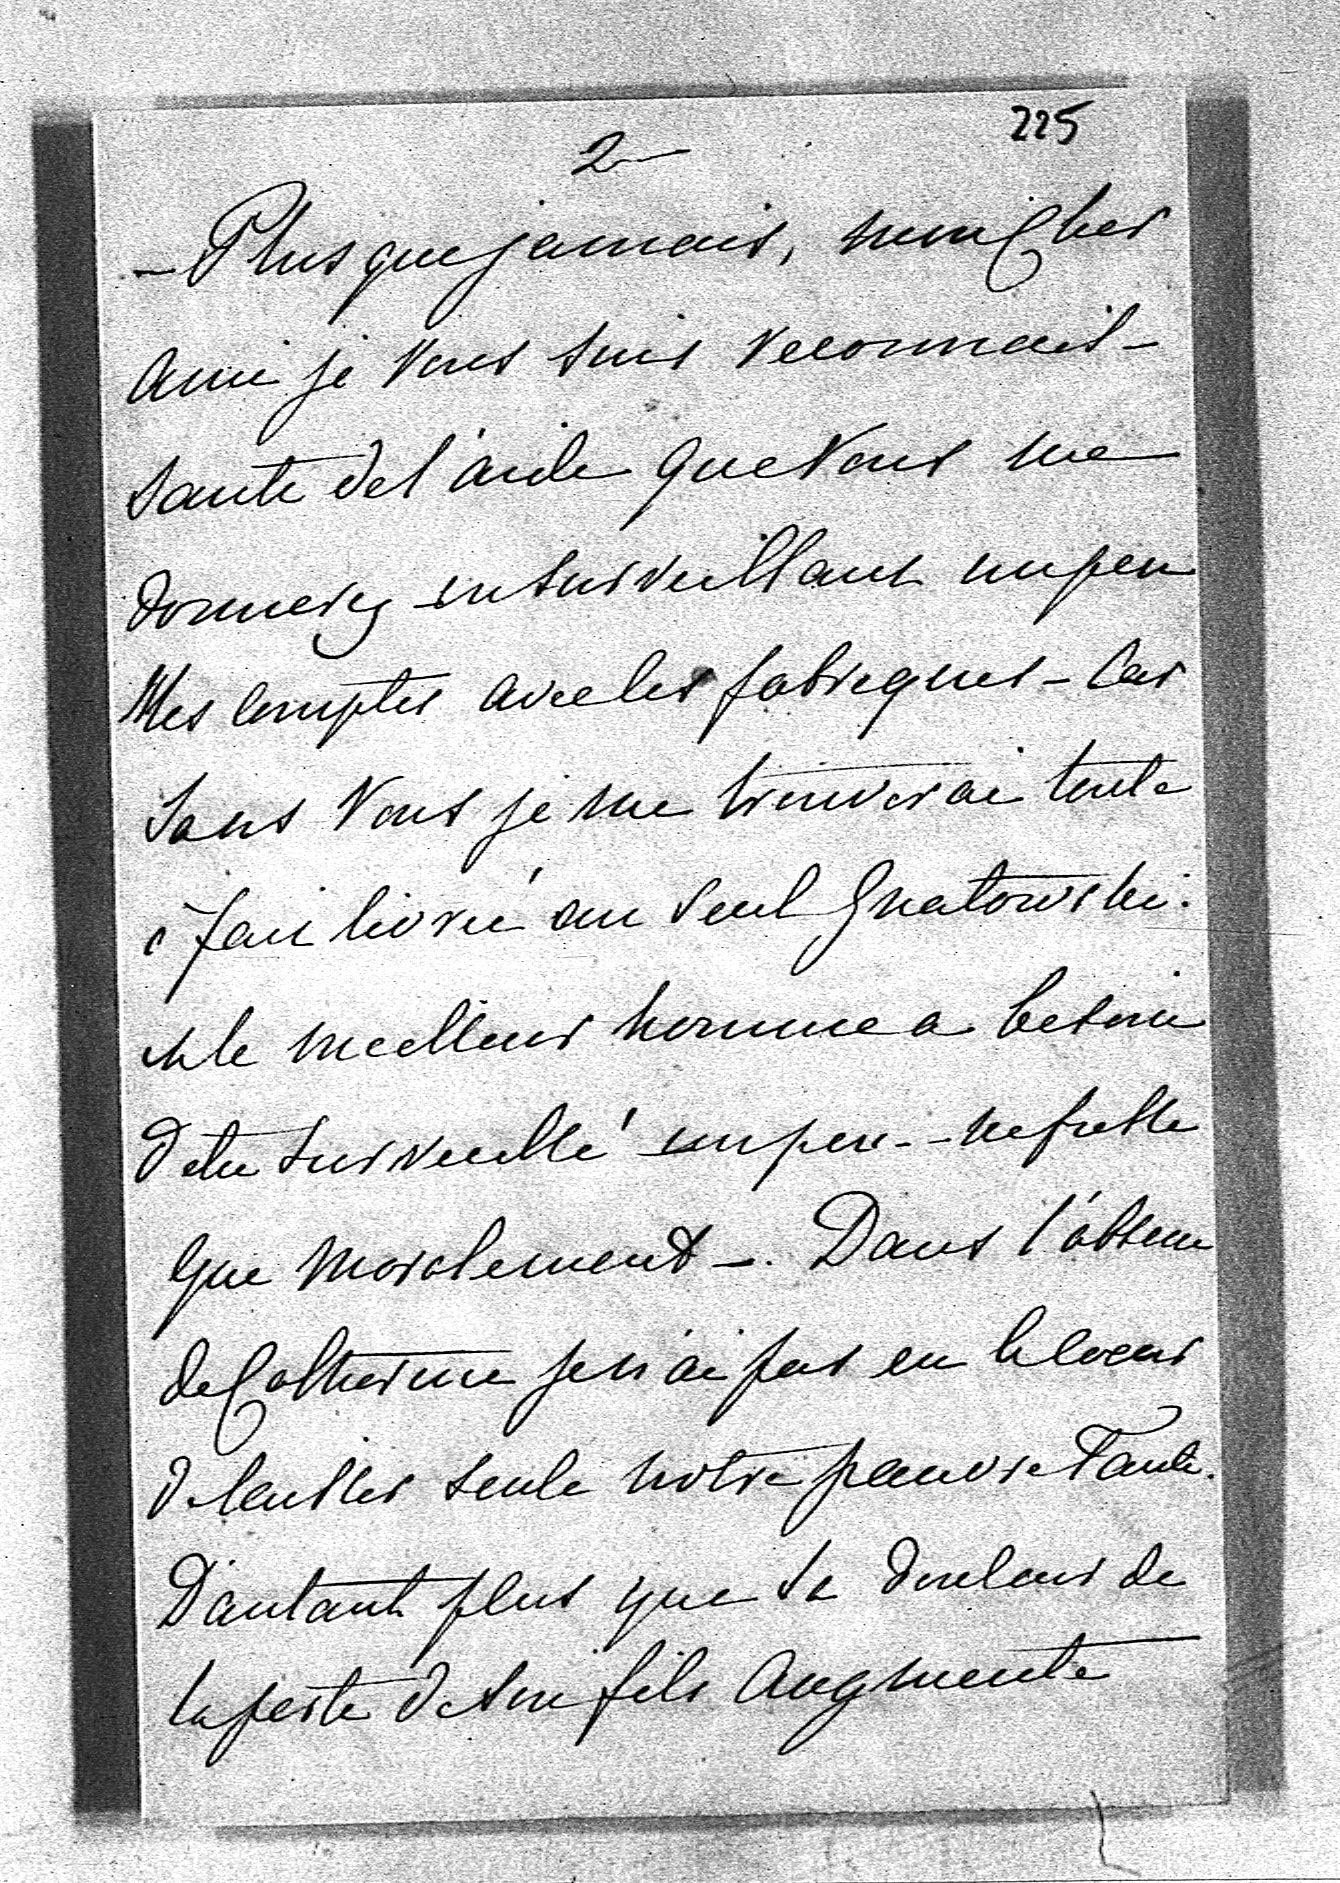 225
2
– Plus que jamais, mon Cher
Ami je Vous suis reconnais-
sante de l'aide que Vous me
donnerez en surveillant un peu
Mes comptes avec les fabriques – Car
Sans Vous je me trouverai toute
à fait livrée au seul Gnatowski.
et le meilleur homme a besoin
d'etre surveillé un peu – ne fusse
que moralement –. Dans l'absence
de Catherine je n'ai pas eu le coeur
de laisser seule notre pauvre Tante.
D'autant plus que sa douleur de
la perte de son fils augmente